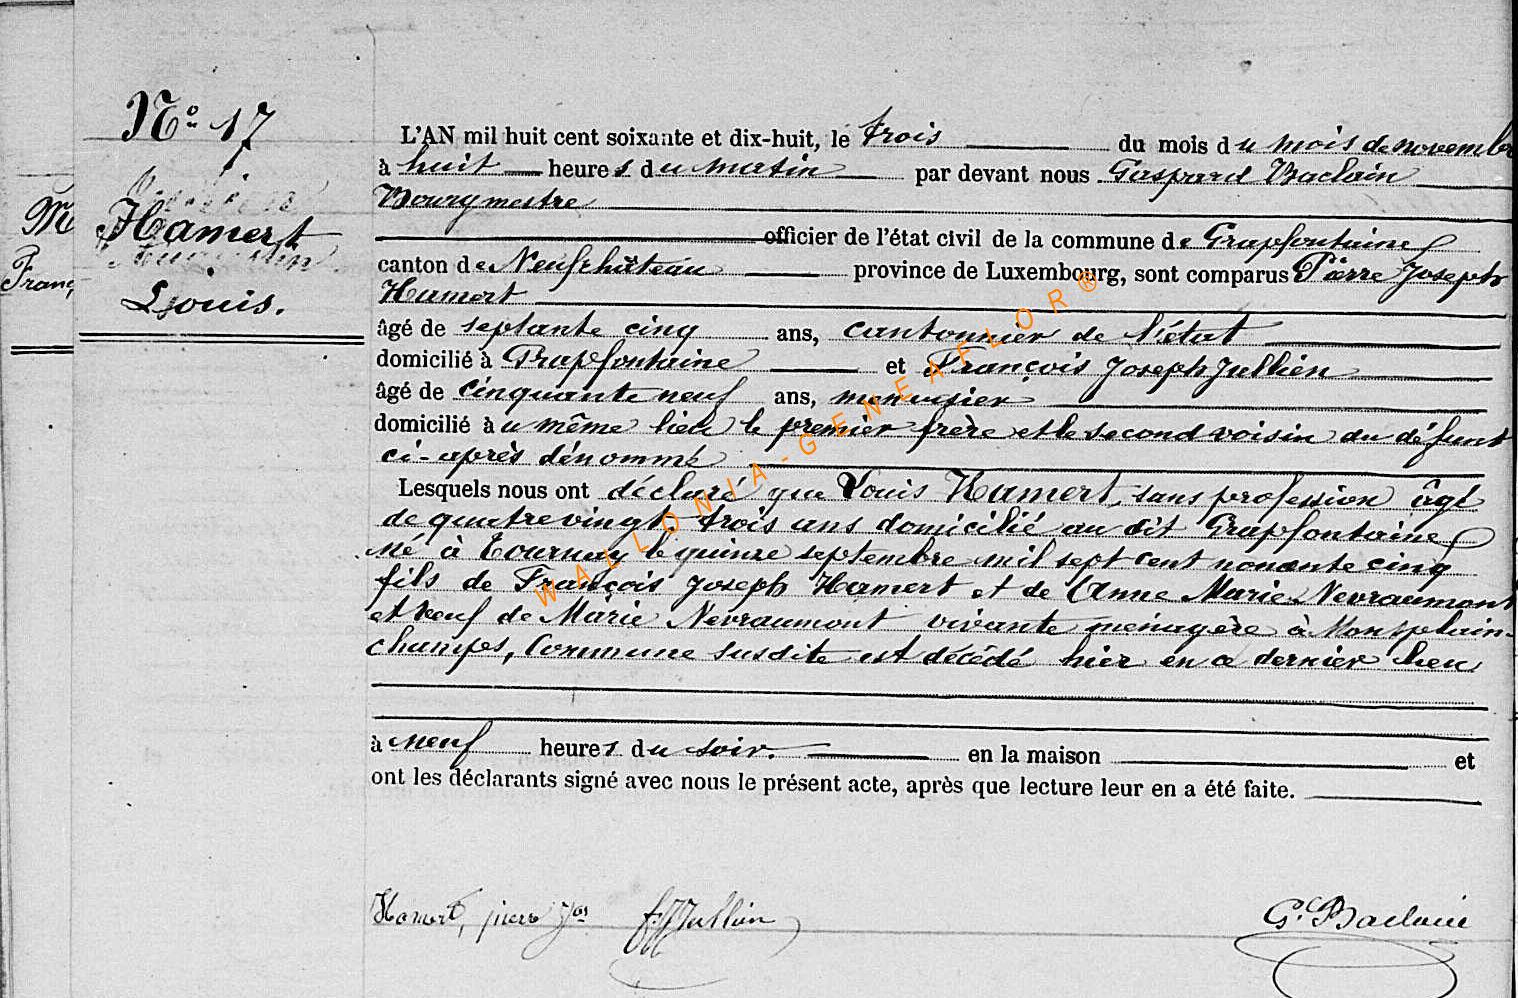 N° 17
Hamert
Louis.
Franç
L'AN mil huit cent soixante et dix-huit, le trois du mois du mois de novembre
à huit heures du matin par devant nous Gaspard Baclain
Bourgmestre
officier de l'état civil de la commune de Grapfontaine
canton de Neufchâteau province de Luxembourg, sont comparus Pierre Joseph
Hamert
âgé de septante cinq ans, cantonnier de l'état
domicilié à Grapfontaine et François Joseph Jullien
âgé de cinquante neuf ans, menuisier
domicilié au même lieu le premier frère et le second voisin du défunt
ci-après dénommé
Lesquels nous ont déclaré que Louis Hamert, sans profession âgé
de quatre vingt trois ans domicilié au dit Grapfontaine
né à Tournay le quinze septembre mil sept cent nonante cinq
fils de François Joseph Hamert et de Anne Marie Nevraumont
et veuf de Marie Nevraumont vivante ménagère à Montplain-
champs, Commune susdite est décédé hier en ce dernier lieu
à neuf heures du soir. en la maison et
ont les déclarants signé avec nous le présent acte, après que lecture leur en a été faite.
Hamert, pierre Jos FJJullien G. Baclain
WALLONIA-GENEAFLOR®